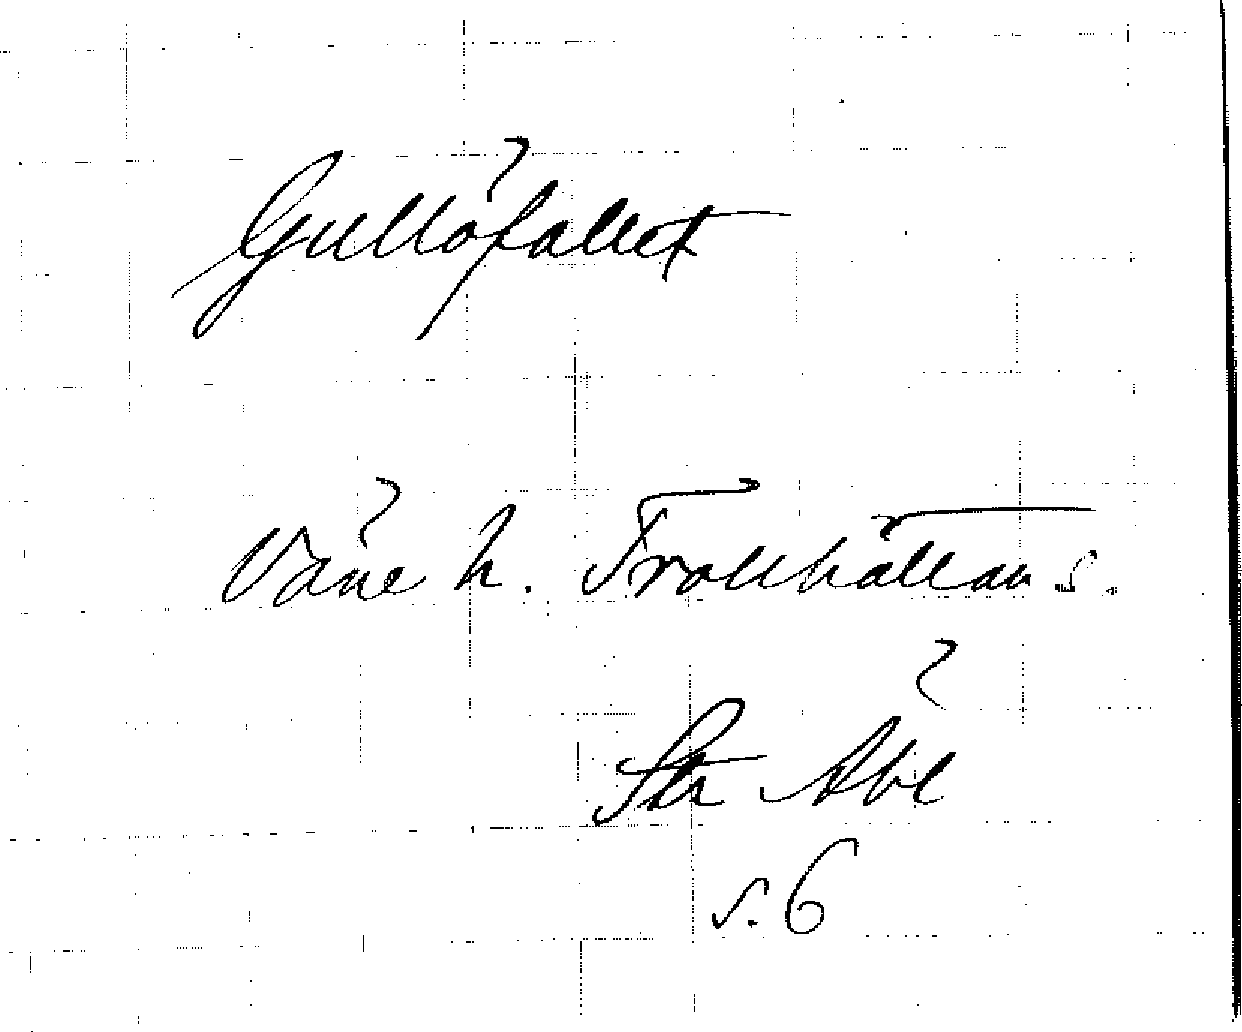 Gullöfallet
Väne h. Trollhättans s.
Sta Åbe
s. 6